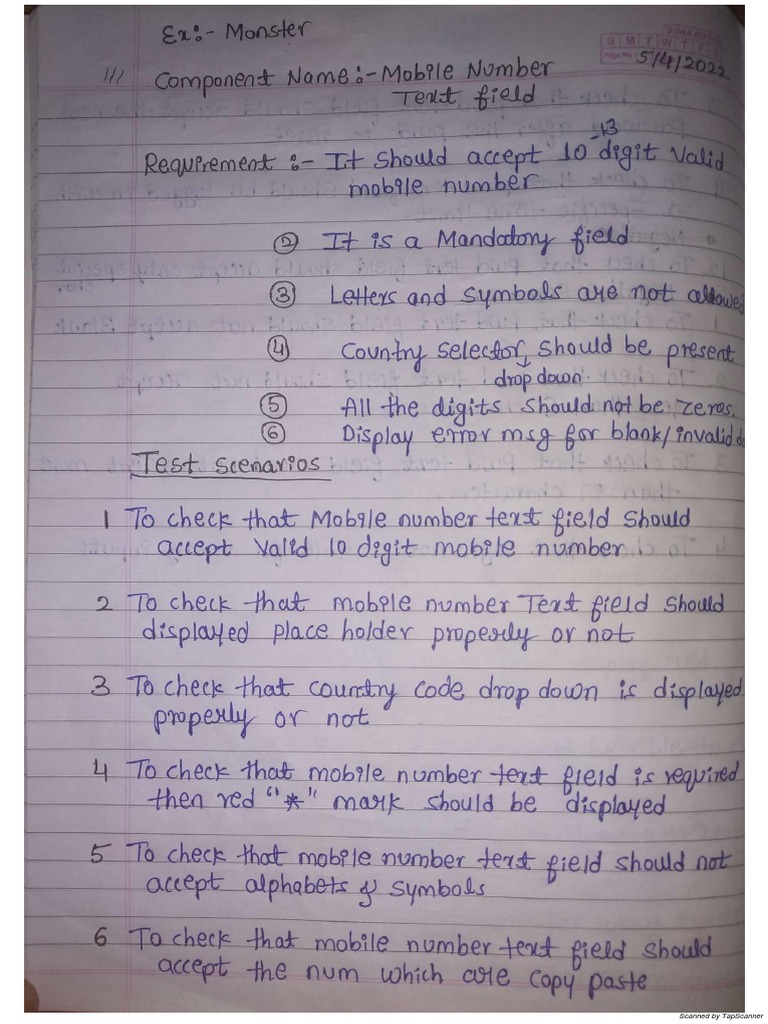 Ex:- Monster
S M T W T F S
Page No.
5/4/2022
111 Component Name:- Mobile Number
Text field
-13
Requirement :- It should accept 10 digit valid
mobile number
② It is a Mandatory field
③ Letters and symbols are not allowed
④ Country selector should be present
drop down.
⑤ All the digits should not be zeros.
⑥ Display error msg for blank/invalid
Test scenarios
1 To check that Mobile number text field should
accept valid 10 digit mobile number
2 To check that mobile number Text field should
displayed place holder properly or not
3 To check that country code drop down is displayed
properly or not
4 To check that mobile number text field is required
then red "*" mark should be displayed
5 To check that mobile number text field should not
accept alphabets & symbols
6 To check that mobile number text field should
accept the num which are copy paste
Scanned by TapScanner